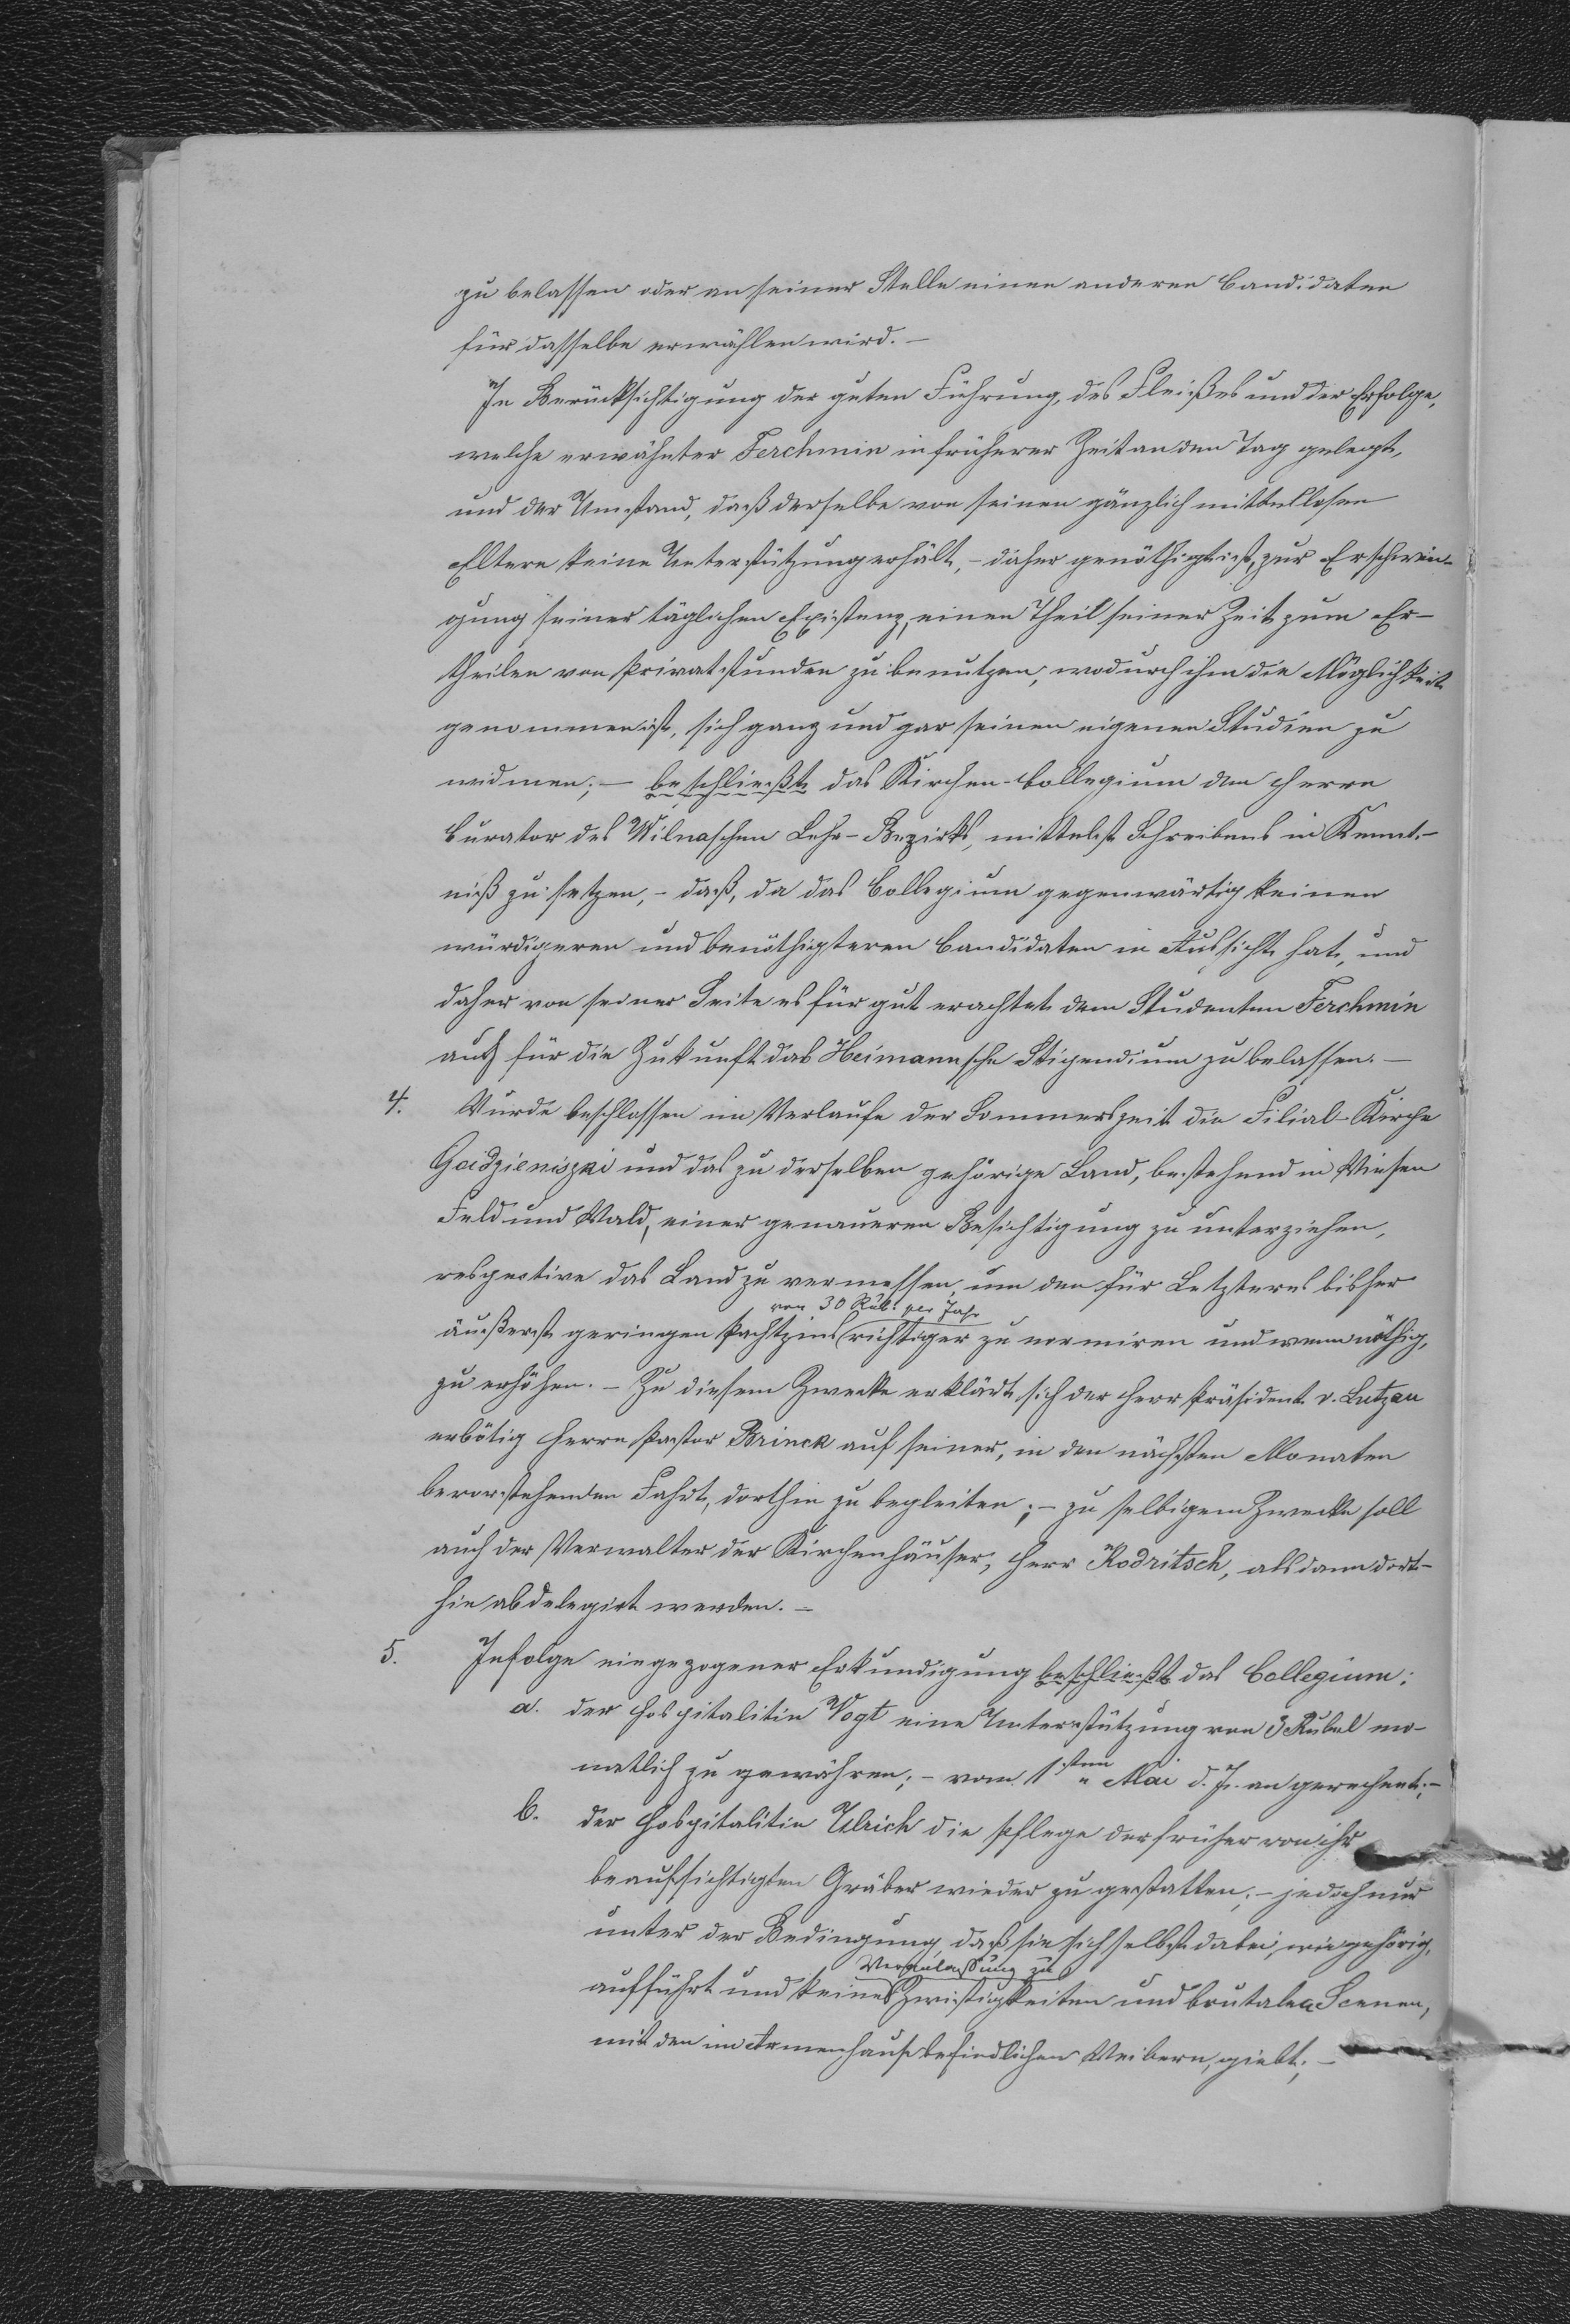 zu belassen oder an seiner Stelle einen anderen Candidaten
für dasselbe erwählen wird. –
In Berücksichtigung der guten Führung, des Fleißes und der Erfolge,
welche erwähnter Ferchmin in früherer Zeit an den Tag gelegt,
und der Umstand, daß derselbe von seinen gänzlich mittellosen
Eltern keine Unterstützung erhält, – daher genöthigt ist, zur Erschwin-
gung seiner täglichen Existenz, einen Theil seiner Zeit zum Er-
theilen von Privatstunden zu benutzen, wodurch ihm die Möglichkeit
genommen ist, sich ganz und gar seinen eigenen Studien zu
widmen; – beschließt das Kirchen-Collegium den Herrn
Curator des Wilnaschen Lehr-Bezirks, mittelst Schreibens in Kennt-
niß zu setzen, – daß, da das Collegium gegenwärtig keinen
würdigeren und benöthigteren Candidaten in Aussicht hat, und
daher von seiner Seite es für gut erachtet dem Studenten Ferchmin
auch für die Zukunft das Heimannsche Stipendium zu belassen. –
4. Wurde beschlossen im Verlaufe der Sommerszeit die Filial-Kirche
Gaidzieniszki und das zu derselben gehörige Land, bestehend in Wiesen
Feld und Wald, einer genaueren Besichtigung zu unterziehen,
respective das Land zu vermessen, um den für Letzteres bisher
von 30 Rub. per Jahr
äußerst geringen Pachtzins richtiger zu normiren und wenn nöthig,
zu erhöhen. – Zu diesem Zwecke erklärt sich der Herr Präsident v. Lutzau
erbötig Herrn Pastor Brinck auf seiner, in den nächsten Monaten
bevorstehenden Fahrt, dorthin zu begleiten; – zu selbigem Zwecke soll
auch der Verwalter der Kirchenhäuser, Herr Rodritsch, alsdann dort-
hin abdelegirt werden. –
5. Infolge eingezogener Erkundigung beschließt das Collegium:
a. der Hospitalitin Vogt eine Unterstützung von 3 Rubel mo-
natlich zu gewähren; – vom 1sten Mai d. J. an gerechnet; –
b. der Hospitalitin Ulrich die Pflege der früher von ihr
beaufsichtigten Gräber wieder zu gestatten; – jedoch nur
unter der Bedingung, daß sie sich selbst dabei, wie gehörig,
Veranlassung zu
aufführt und keine Zwistigkeiten und brutalen Scenen,
mit den im Armenhause befindlichen Weibern, giebt; –